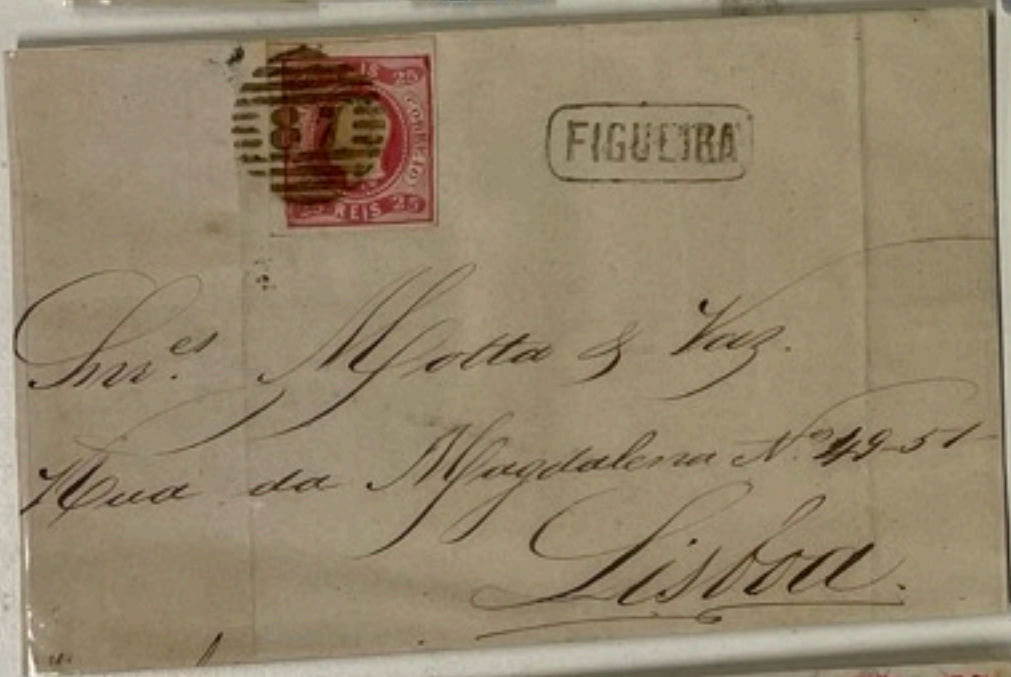 IS 25
CORREIO
25 REIS 25
87
FIGUEIRA
Snr.es Motta & Vaz.
Rua da Magdalena Nº 49-51
Lisboa.